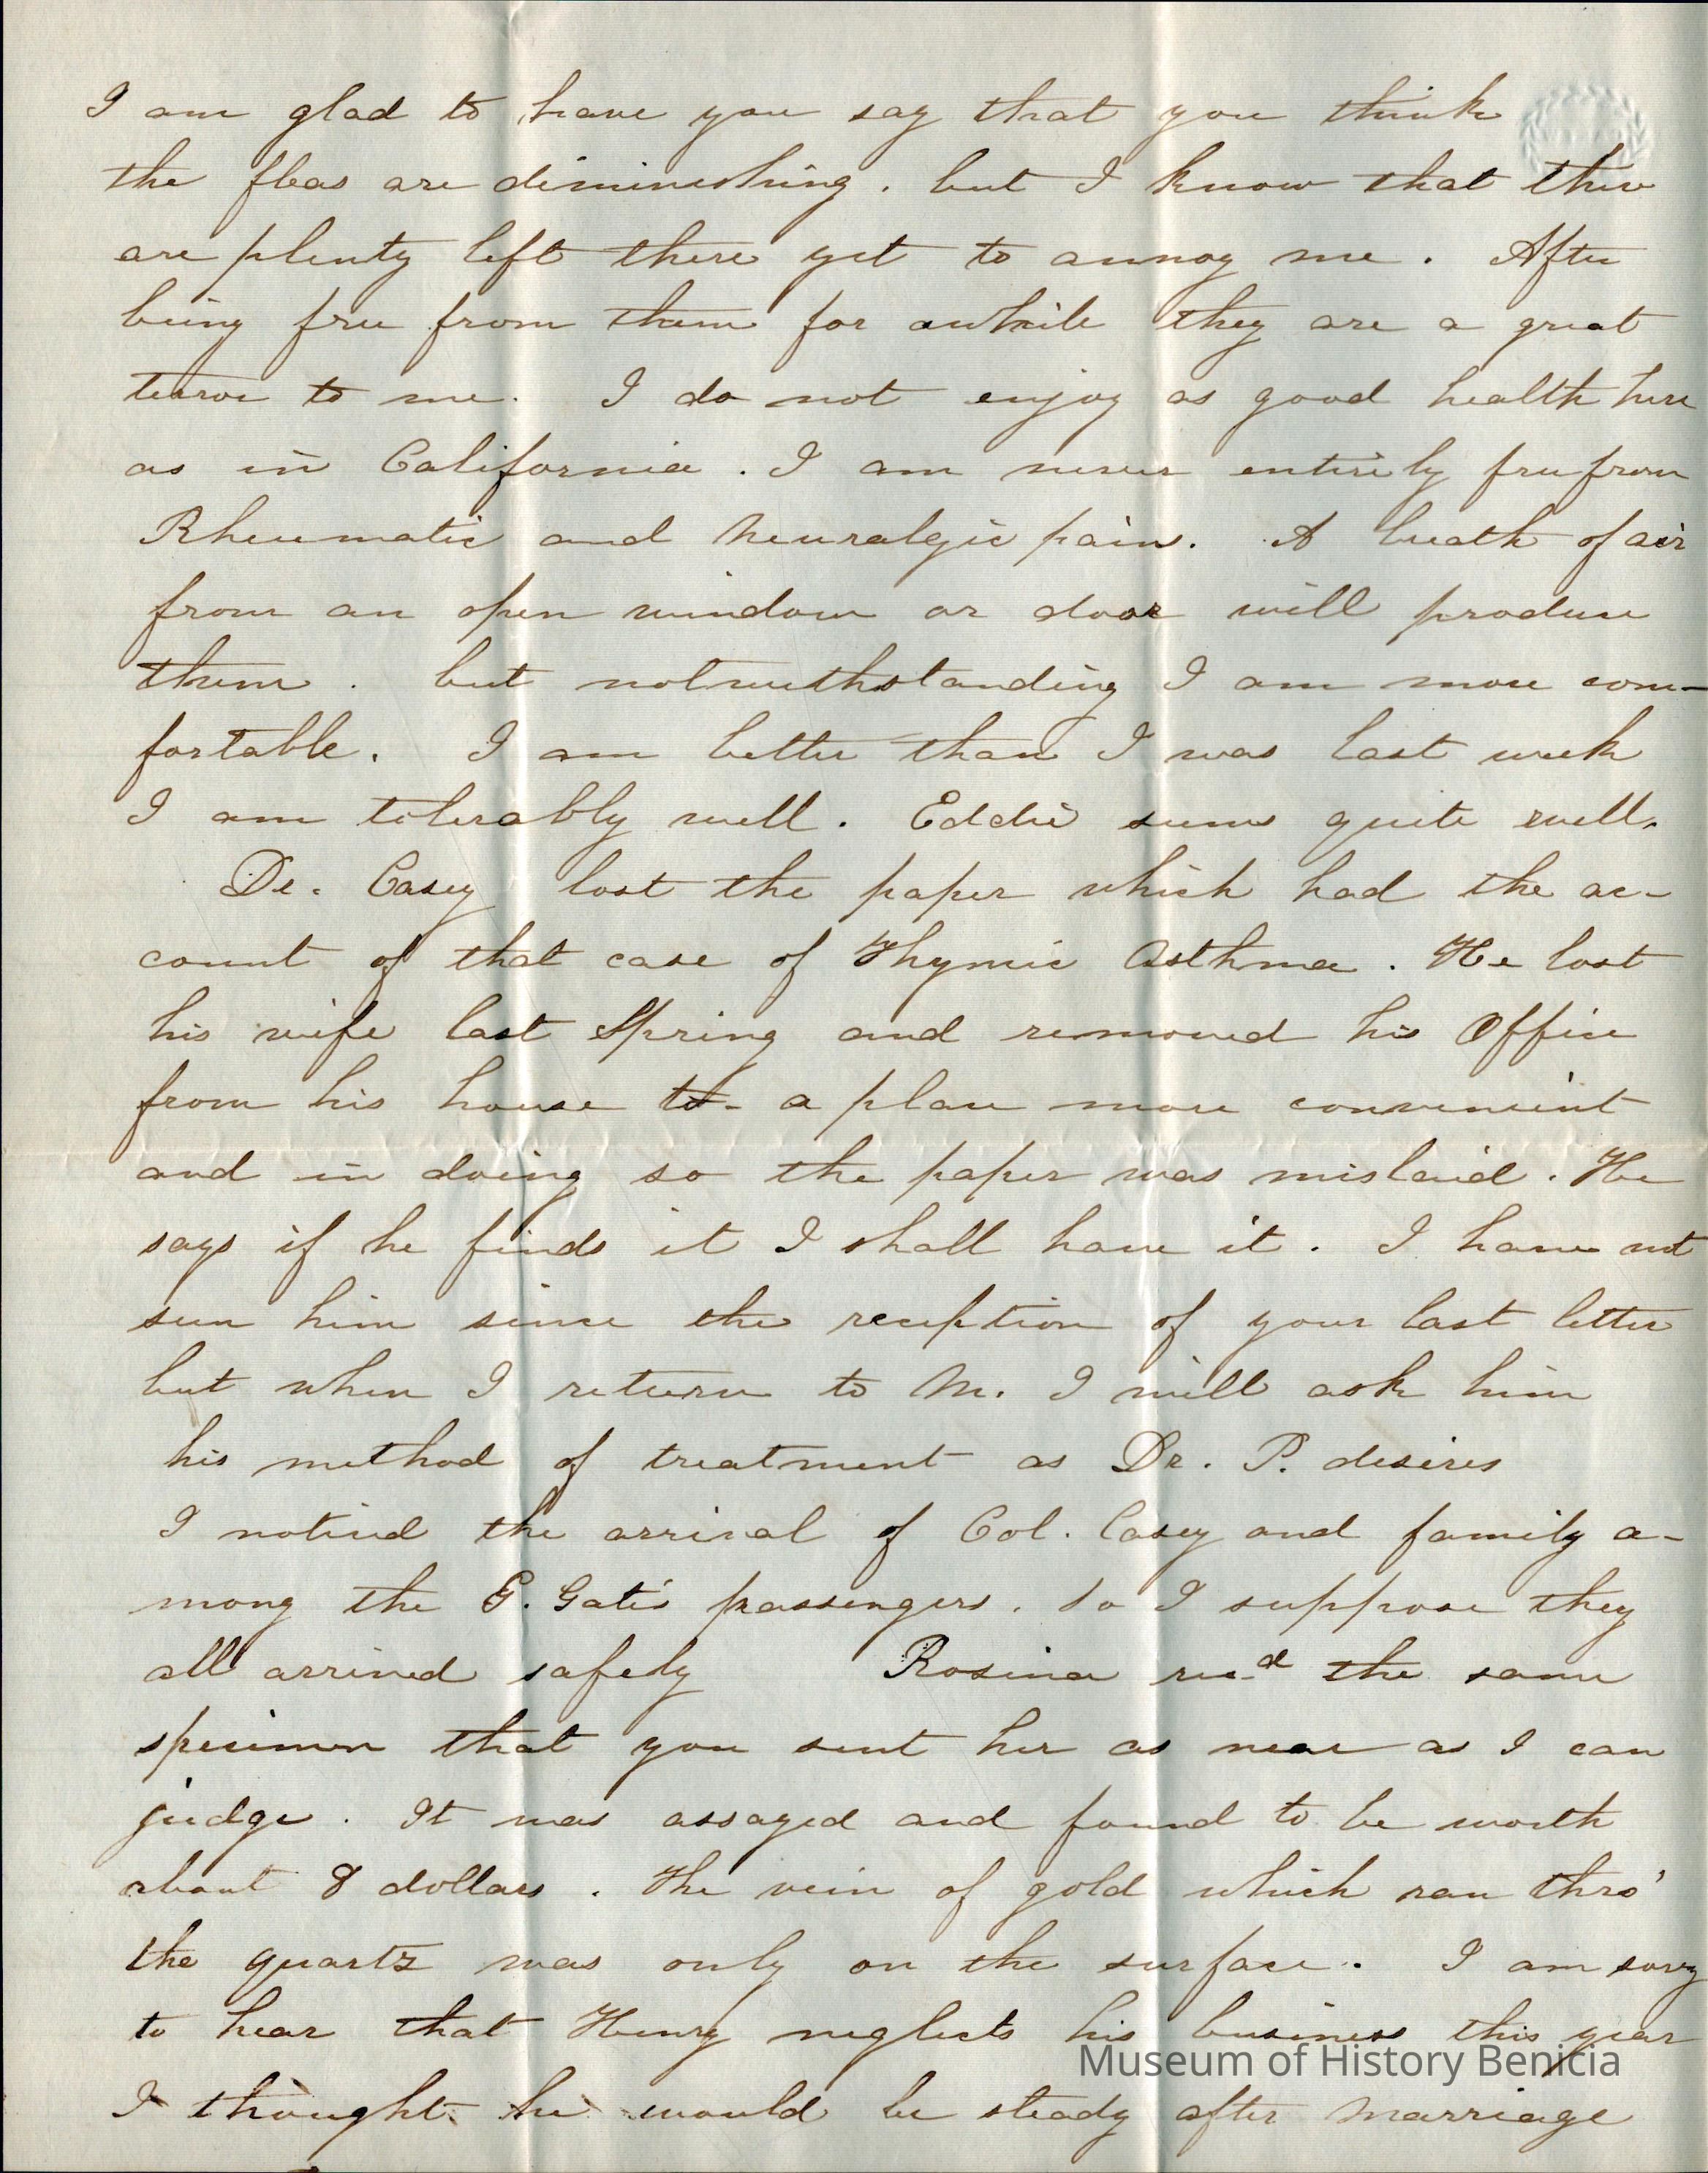 I am glad to have you say that you think
the fleas are diminishing. but I know that there
are plenty left there yet to annoy me. After
being free from them for awhile they are a great
terror to me. I do not enjoy as good health here
as in California. I am never entirely free from
Rheumatic and Neuralgic pain. A breath of air
from an open window or door will produce
them. but notwithstanding I am more com-
fortable. I am better than I was last week
I am tolerably well. Eddie seems quite well.
Dr. Casey lost the paper which had the ac-
count of that case of Thymic Asthma. He lost
his wife last Spring and removed his Office
from his house to a place more convenient
and in doing so the paper was mislaid. He
says if he finds it I shall have it. I have not
seen him since the reception of your last letter
but when I return to M. I will ask him
his method of treatment as Dr. P. desires
I noticed the arrival of Col. Casey and family a-
mong the G. Gate's passengers. so I suppose they
all arrived safely Rosina recd the same
specimen that you sent her as near as I can
judge. It was assayed and found to be worth
about 8 dollars. The vein of gold which ran thro'
the quartz was only on the surface. I am sorry
to hear that Henry neglects his business this year
Museum of History Benicia
I thought he would be steady after marriage